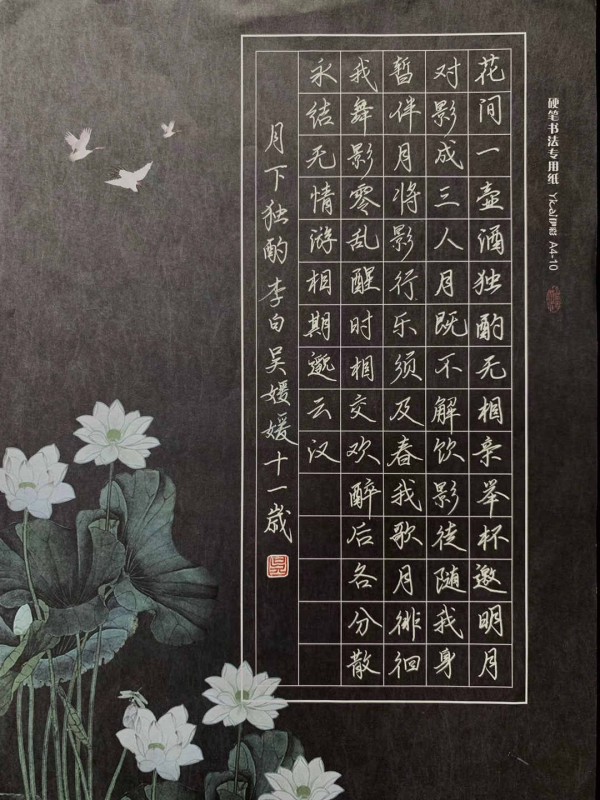 花间一壶酒独酌无相亲举杯邀明月
对影成三人月既不解饮影徒随我身
暂伴月将影行乐须及春我歌月徘徊
我舞影零乱醒时相交欢醉后各分散
永结无情游相期邈云汉
月下独酌 李白 吴媛媛十一岁
硬笔书法专用纸 A4-10